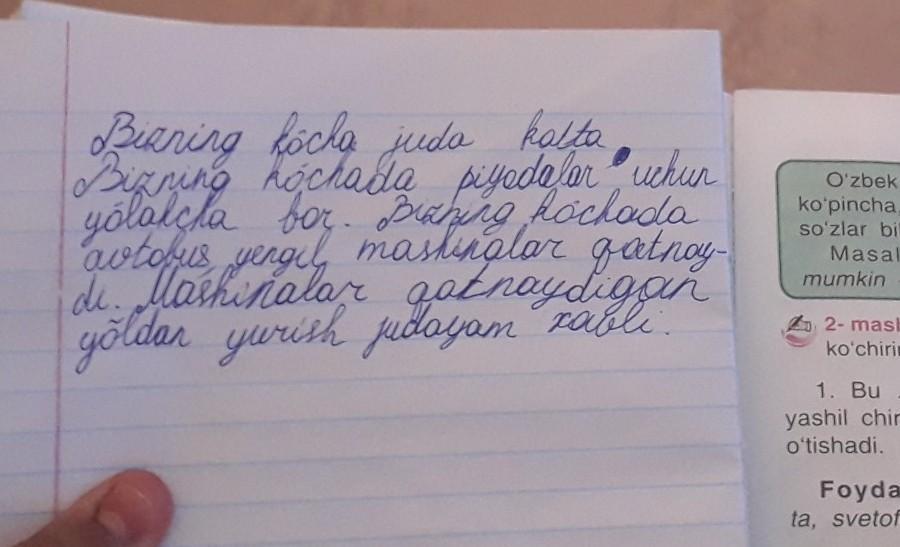 Bizning kócha juda kalta.
Bizning kóchada piyodalar uchun
yólakcha bor. Bizning kóchada
avtobus yengil mashinalar qatnay-
di. Mashinalar qatnaydigan
yõldan yurish judayam xavli.
O'zbek
ko'pincha,
so'zlar bi
Masal
mumkin
2- mash
ko'chirin
1. Bu
yashil chir
o'tishadi.
Foyda
ta, svetof